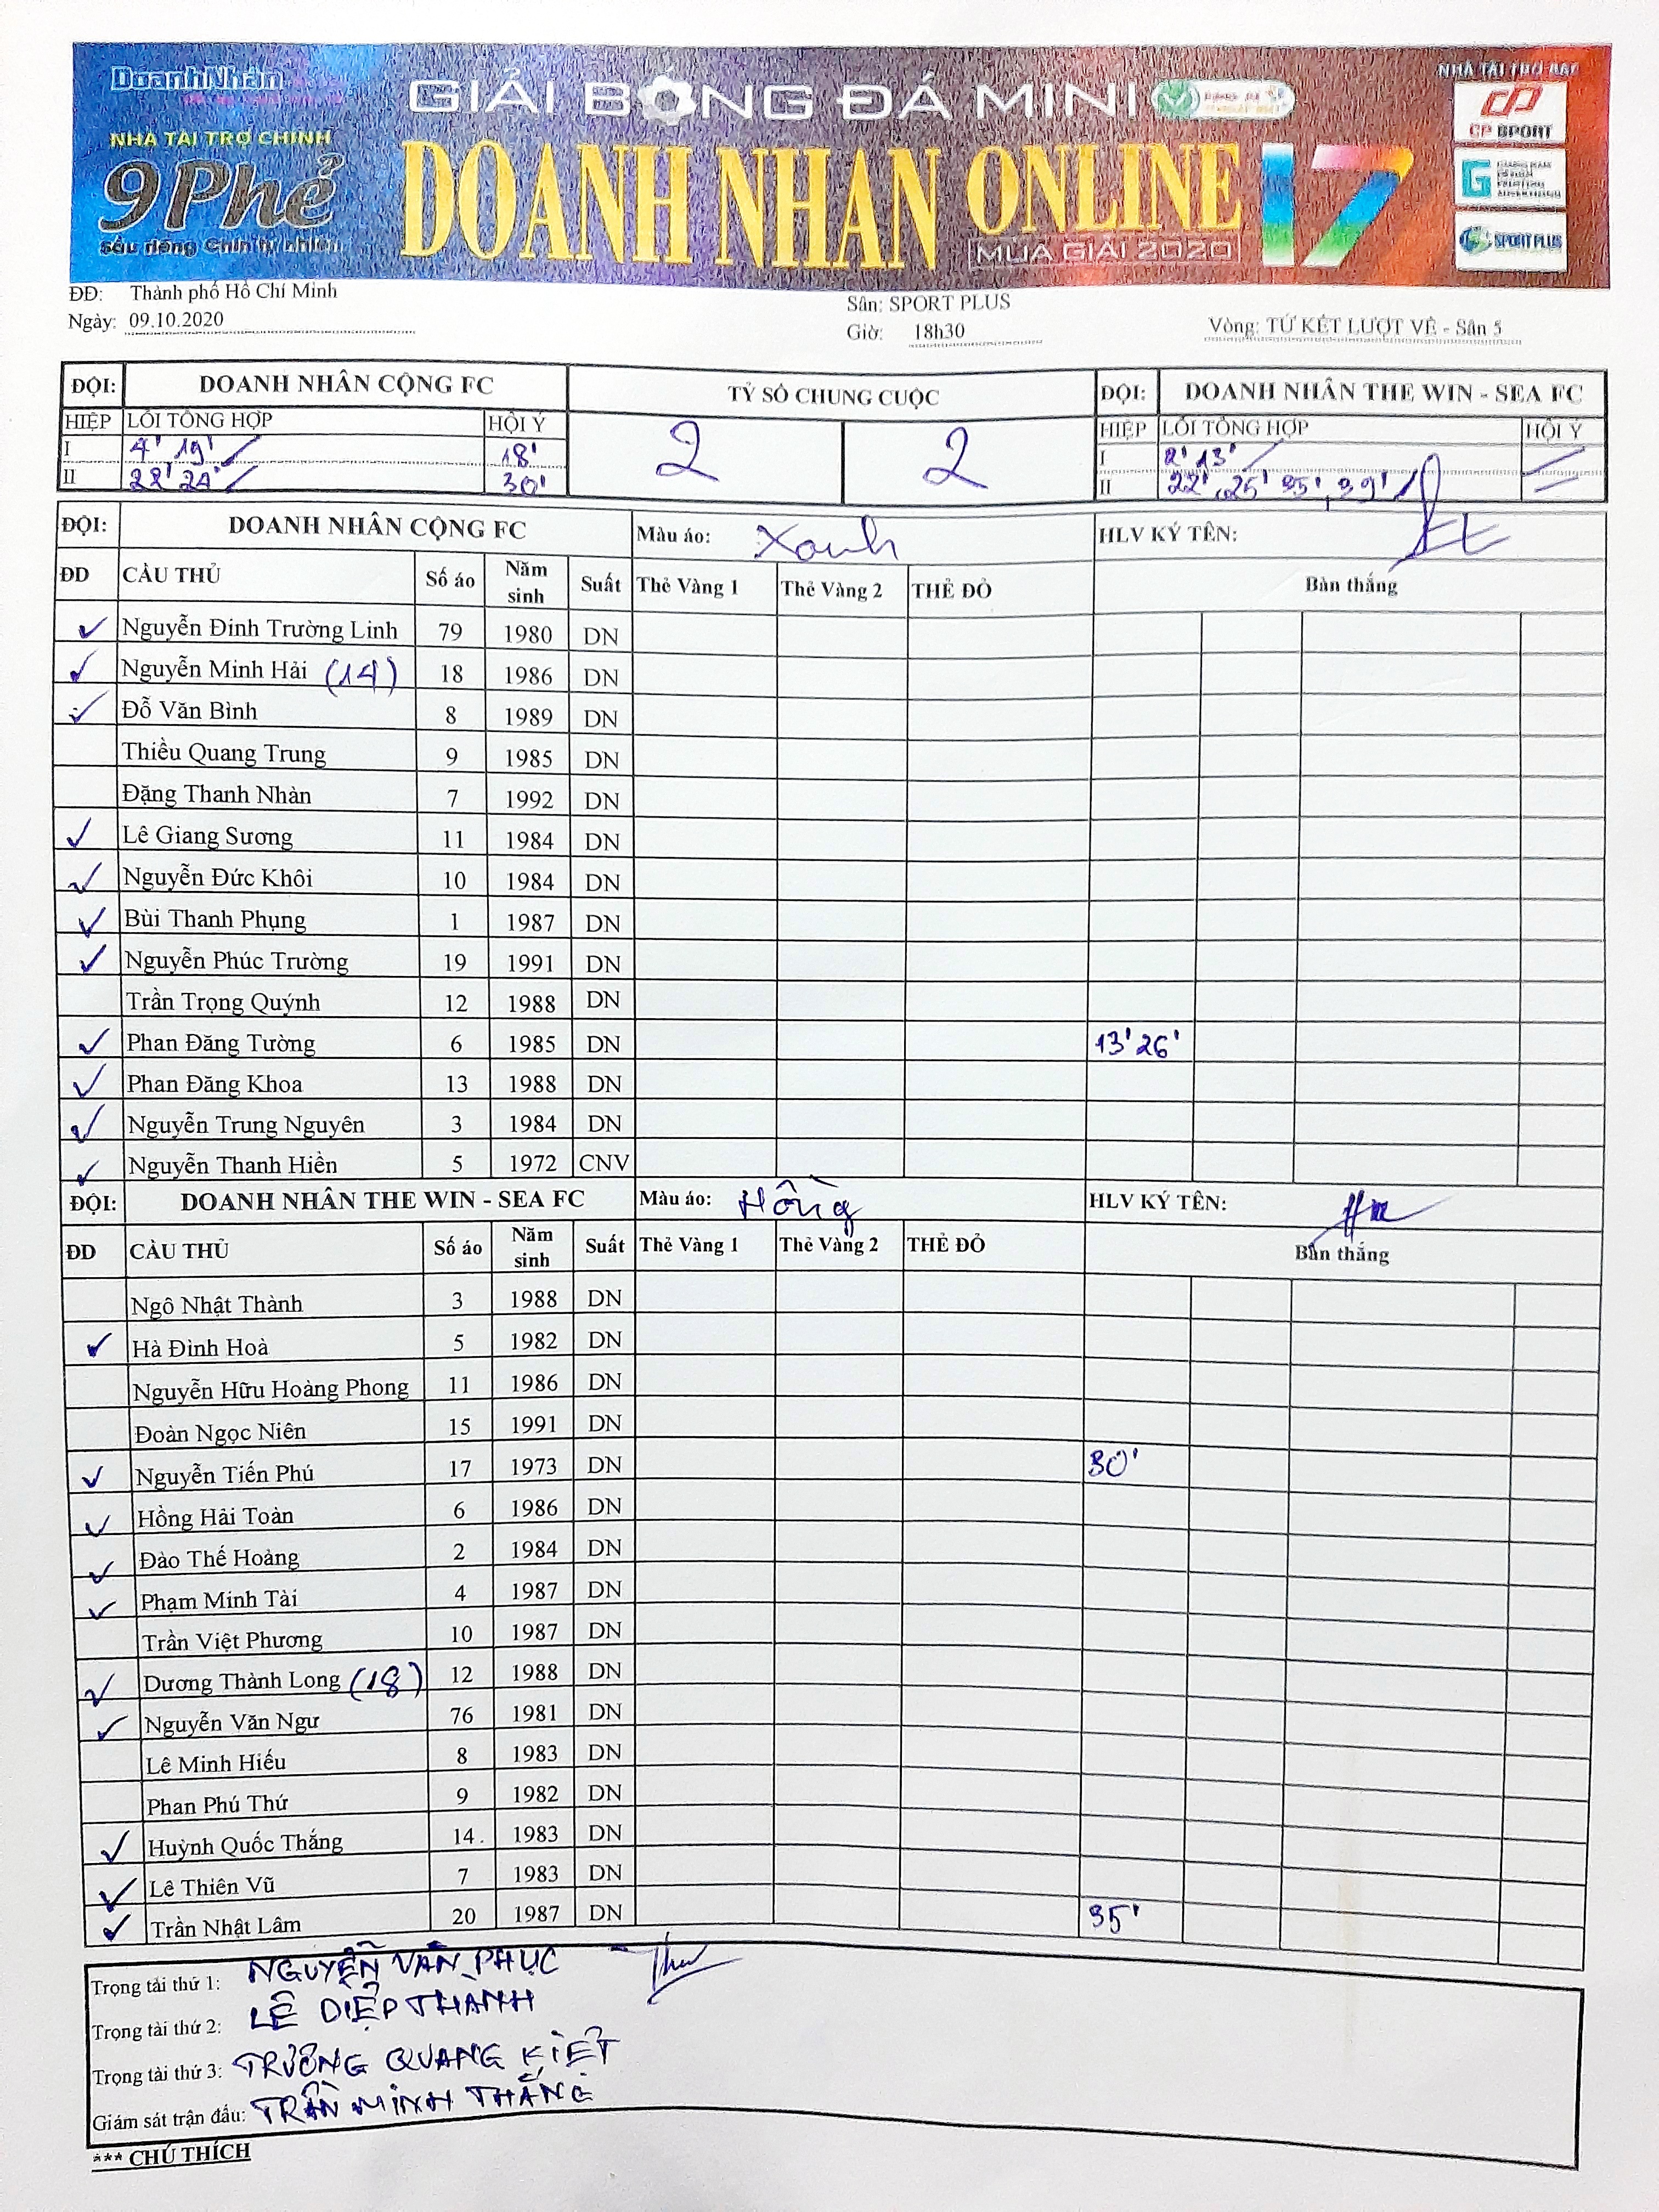 DoanhNhân
NHÀ TÀI TRỢ CHÍNH
9Phẻ
GIẢI BÓNG ĐÁ MINI
DOANH NHAN ONLINE 17
MÙA GIẢI 2020
CP SPORT
SPORT PLUS
ĐĐ: Thành phố Hồ Chí Minh
Ngày: 09.10.2020
Sân: SPORT PLUS
Giờ: 18h30
Vòng: TỨ KẾT LƯỢT VỀ - Sân 5
ĐỘI: DOANH NHÂN CỘNG FC TỶ SỐ CHUNG CUỘC ĐỘI: DOANH NHÂN THE WIN - SEA FC
HIỆP LỖI TỔNG HỢP HỘI Ý 2 2 HIỆP LỖI TỔNG HỢP HỘI Ý
I 4' 19' 18' I 2' 13'
II 22' 24' 30' II 22' 25' 35' 39'
ĐỘI: DOANH NHÂN CỘNG FC Màu áo: Xanh HLV KÝ TÊN:
ĐD CẦU THỦ Số áo Năm sinh Suất Thẻ Vàng 1 Thẻ Vàng 2 THẺ ĐỎ Bàn thắng
Nguyễn Đinh Trường Linh 79 1980 DN
Nguyễn Minh Hải (14) 18 1986 DN
Đỗ Văn Bình 8 1989 DN
Thiều Quang Trung 9 1985 DN
Đặng Thanh Nhàn 7 1992 DN
Lê Giang Sương 11 1984 DN
Nguyễn Đức Khôi 10 1984 DN
Bùi Thanh Phụng 1 1987 DN
Nguyễn Phúc Trường 19 1991 DN
Trần Trọng Quýnh 12 1988 DN
Phan Đăng Tường 6 1985 DN 13' 26'
Phan Đăng Khoa 13 1988 DN
Nguyễn Trung Nguyên 3 1984 DN
Nguyễn Thanh Hiền 5 1972 CNV
ĐỘI: DOANH NHÂN THE WIN - SEA FC Màu áo: Hồng HLV KÝ TÊN:
ĐD CẦU THỦ Số áo Năm sinh Suất Thẻ Vàng 1 Thẻ Vàng 2 THẺ ĐỎ Bàn thắng
Ngô Nhật Thành 3 1988 DN
Hà Đình Hoà 5 1982 DN
Nguyễn Hữu Hoàng Phong 11 1986 DN
Đoàn Ngọc Niên 15 1991 DN
Nguyễn Tiến Phú 17 1973 DN 30'
Hồng Hải Toàn 6 1986 DN
Đào Thế Hoàng 2 1984 DN
Phạm Minh Tài 4 1987 DN
Trần Việt Phương 10 1987 DN
Dương Thành Long (18) 12 1988 DN
Nguyễn Văn Ngư 76 1981 DN
Lê Minh Hiếu 8 1983 DN
Phan Phú Thứ 9 1982 DN
Huỳnh Quốc Thắng 14 1983 DN
Lê Thiên Vũ 7 1983 DN
Trần Nhật Lâm 20 1987 DN 35'
Trọng tài thứ 1: NGUYỄN VĂN PHỤC
Trọng tài thứ 2: LÊ DIỆP THÀNH
Trọng tài thứ 3: TRƯƠNG QUANG KIỆT
Giám sát trận đấu: TRẦN MINH THẮNG
*** CHÚ THÍCH